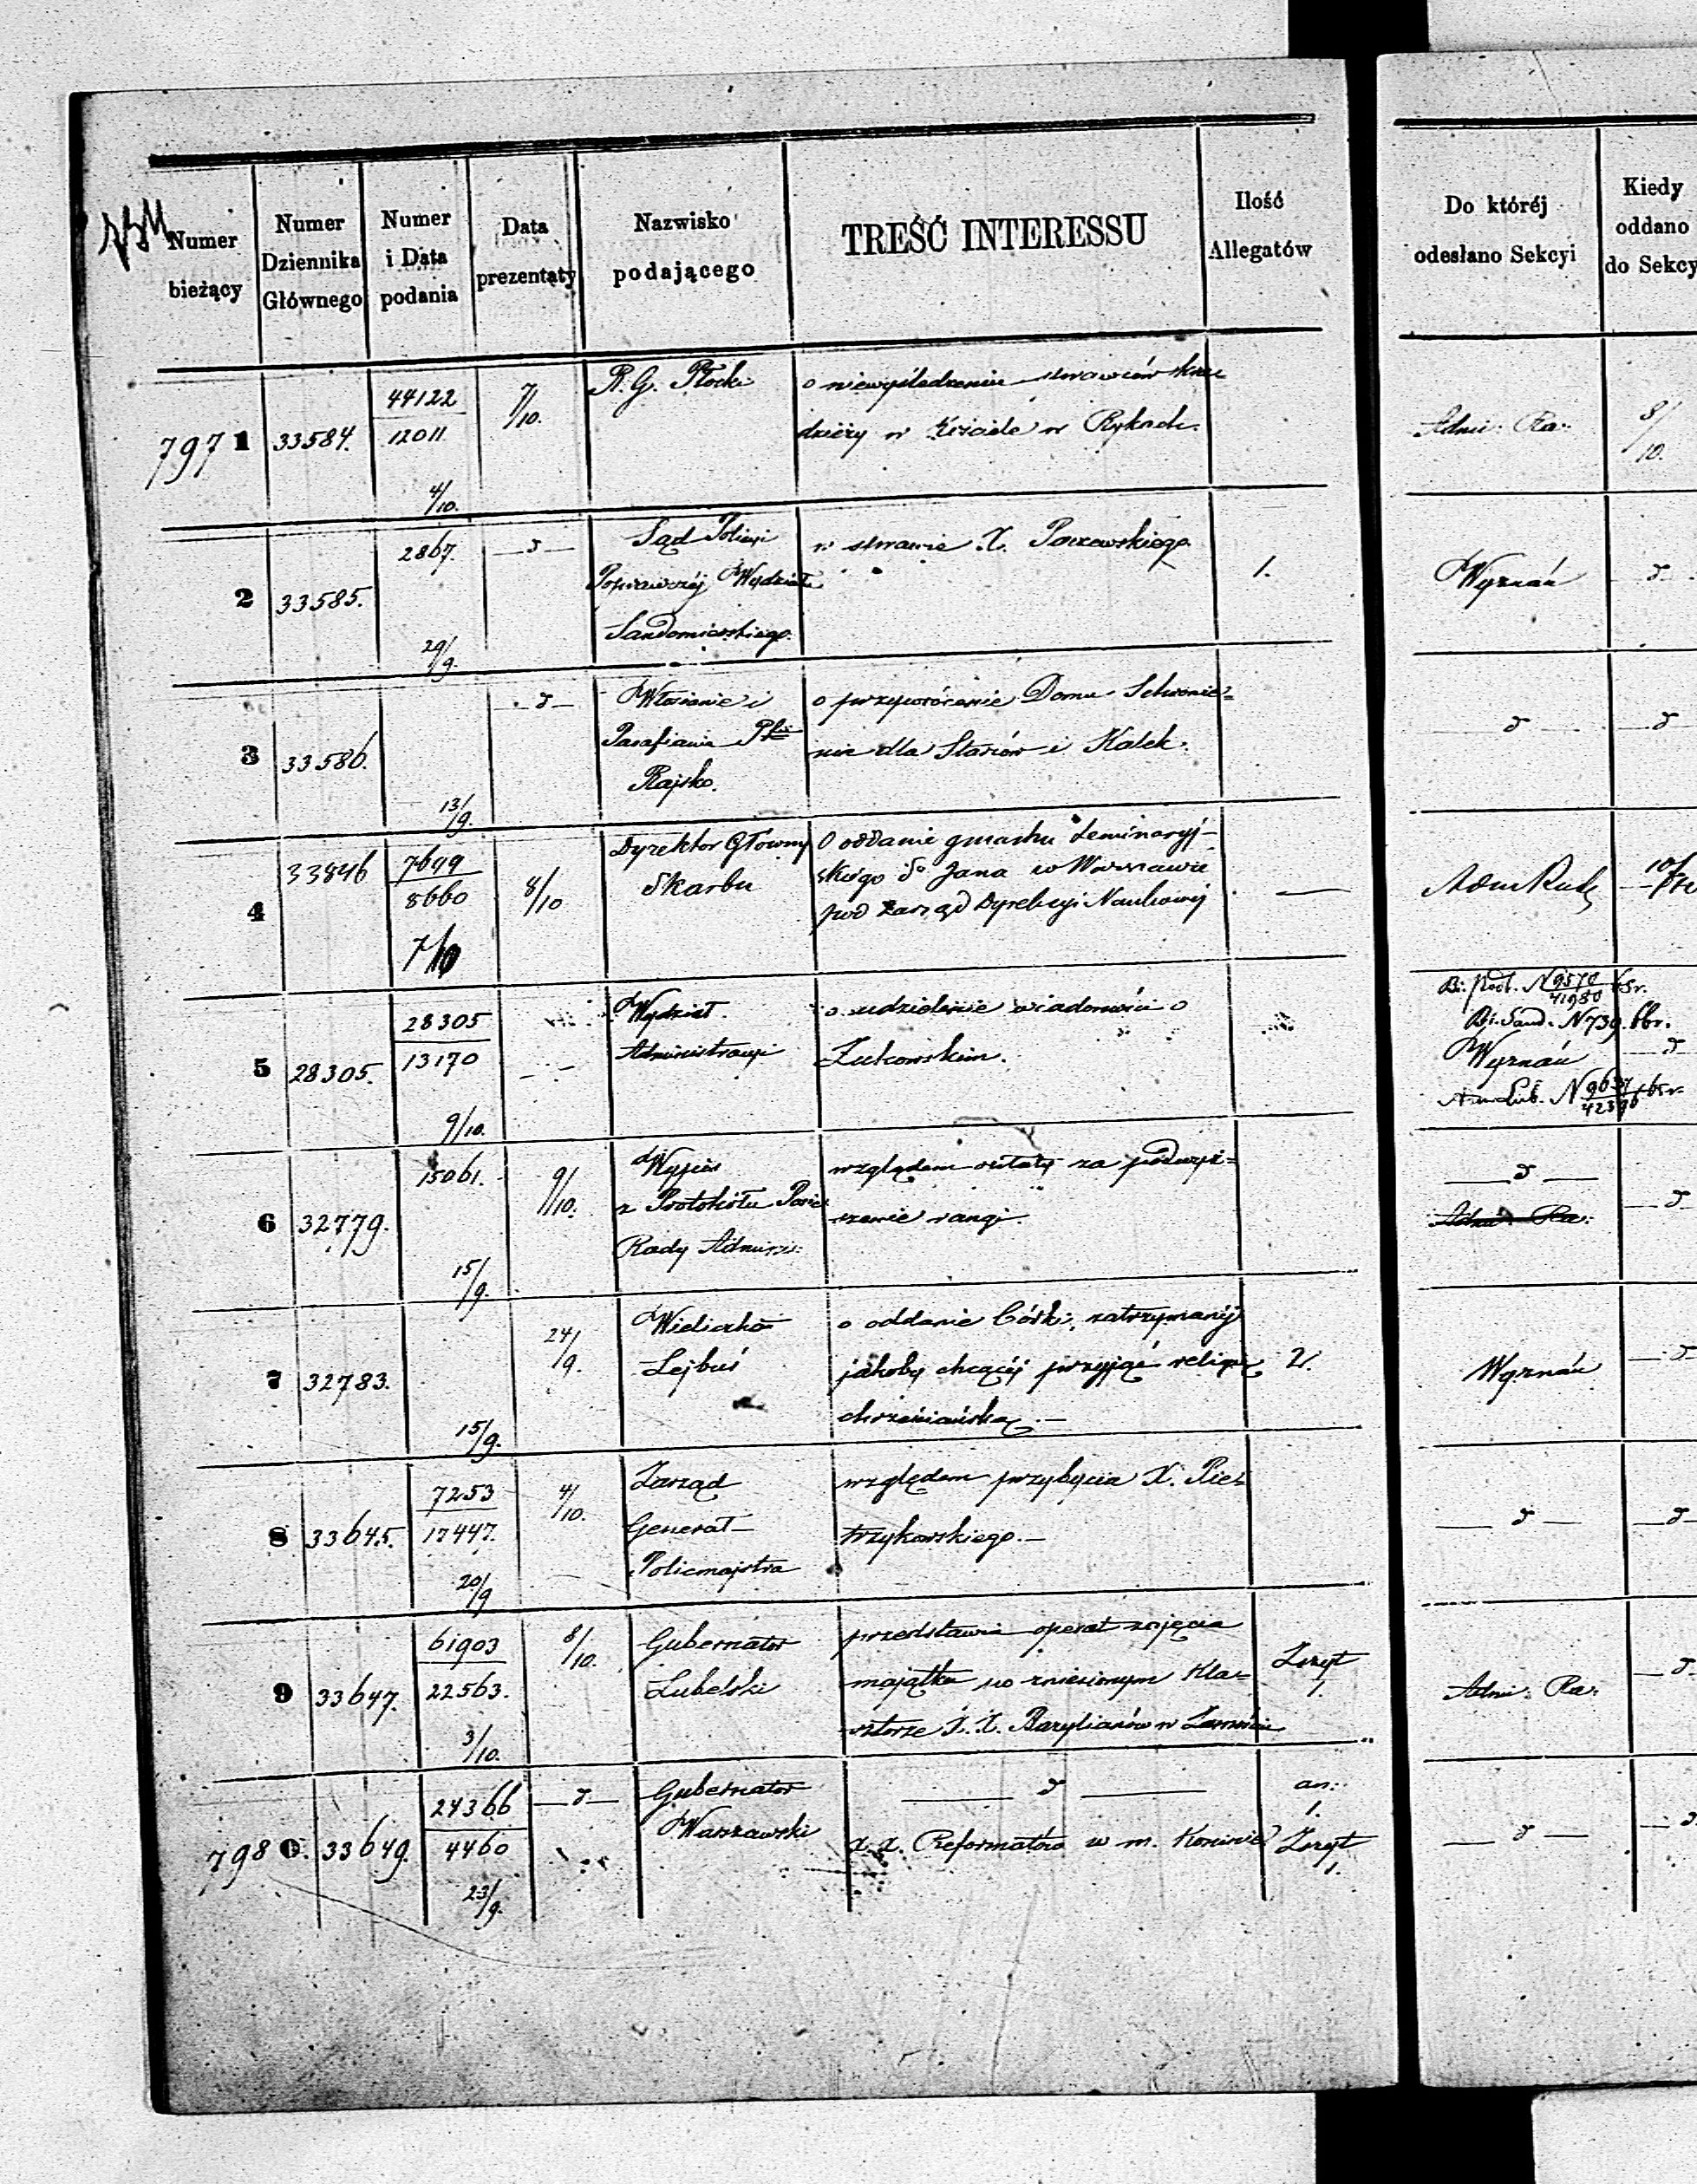 Numer bieżący
Numer Dziennika Głównego
Numer i Data podania
Data prezentaty
Nazwisko podającego
TREŚĆ INTERESSU
Ilość Allegatów
Do któréj odesłano Sekcyi
Kiedy oddano do Sekcy
7971
33584.
44122
12011
4/10.
7/10.
R. G. Płocki
o niewyśledzeniu sprawców kra
dzieży w Kościele w Rykach.
Admi: Ra:
8/10.
2
33585.
2867.
29/9.
d
Sąd Policyi
Poprawczéj Wydziału
Sandomierskiego.
w sprawie X.
1.
Wyznań
d
3
33586.
13/9.
d
Włościanie i
Parafianie
Rajsko.
o przywrócenie Domu Schronie=
nia dla Starców i Kalek.
d
d
4
33846
7699
8660
7/10
8/10
Dyrektor Główny
Skarbu
O oddanie gmachu Seminaryj-
skiego So Jana w Warszawie
pod Zarząd Dyrekcyi Naukowej
—
10/
5
28305.
28305
13170
9/10.
Wydział
Administracyi
o udzielenie wiadomości o
Żukowskim.
N 9570
41980
N 739.
Wyznań
d
6
32779.
15061.
15/9.
9/10.
Wypis
z Protokółu Posie
Rady Adminis:
względem opłaty za podwyż=
szenie rangi.
d
Admi: Ra:
d
7
32783.
15/9.
24/9.
Wieliczko
Lejbuś
o oddanie Córki, zatrzymanéj
jakoby chcącéj przyjąć religię
chrześciańską.—
2.
Wyznań
d
8
33645.
7253
17447.
20/9
4/10.
Zarząd
Generał-
Policmajstra
względem przybycia X. Pie=
trzykowskiego.—
d
d
9
33647.
61903
22563.
3/10.
8/10.
Gubernator
Lubelski
przedstawia operat zajęcia
majątku po zniesionym Kla=
sztorze X. X. Bazylianów w Zamościu
Zeszyt
1.
Admi: Ra:
d
7980.
33649.
24366
4460
23/9.
d
Gubernator
Warszawski
d
X. X. Reformatów w m. Koninie
an:
1.
Zeszyt
1.
d